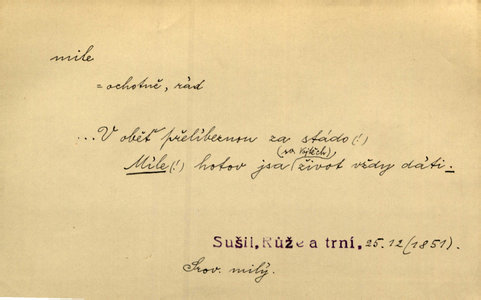 mile
= ochotně, rád
...V oběť přelíbeznou za stádo (!)
(sa kýtěch)
Mile (!) hotov jsa život vždy dáti.
Sušil, Růže a trní, 25.12 (1851).
Srov. milý.